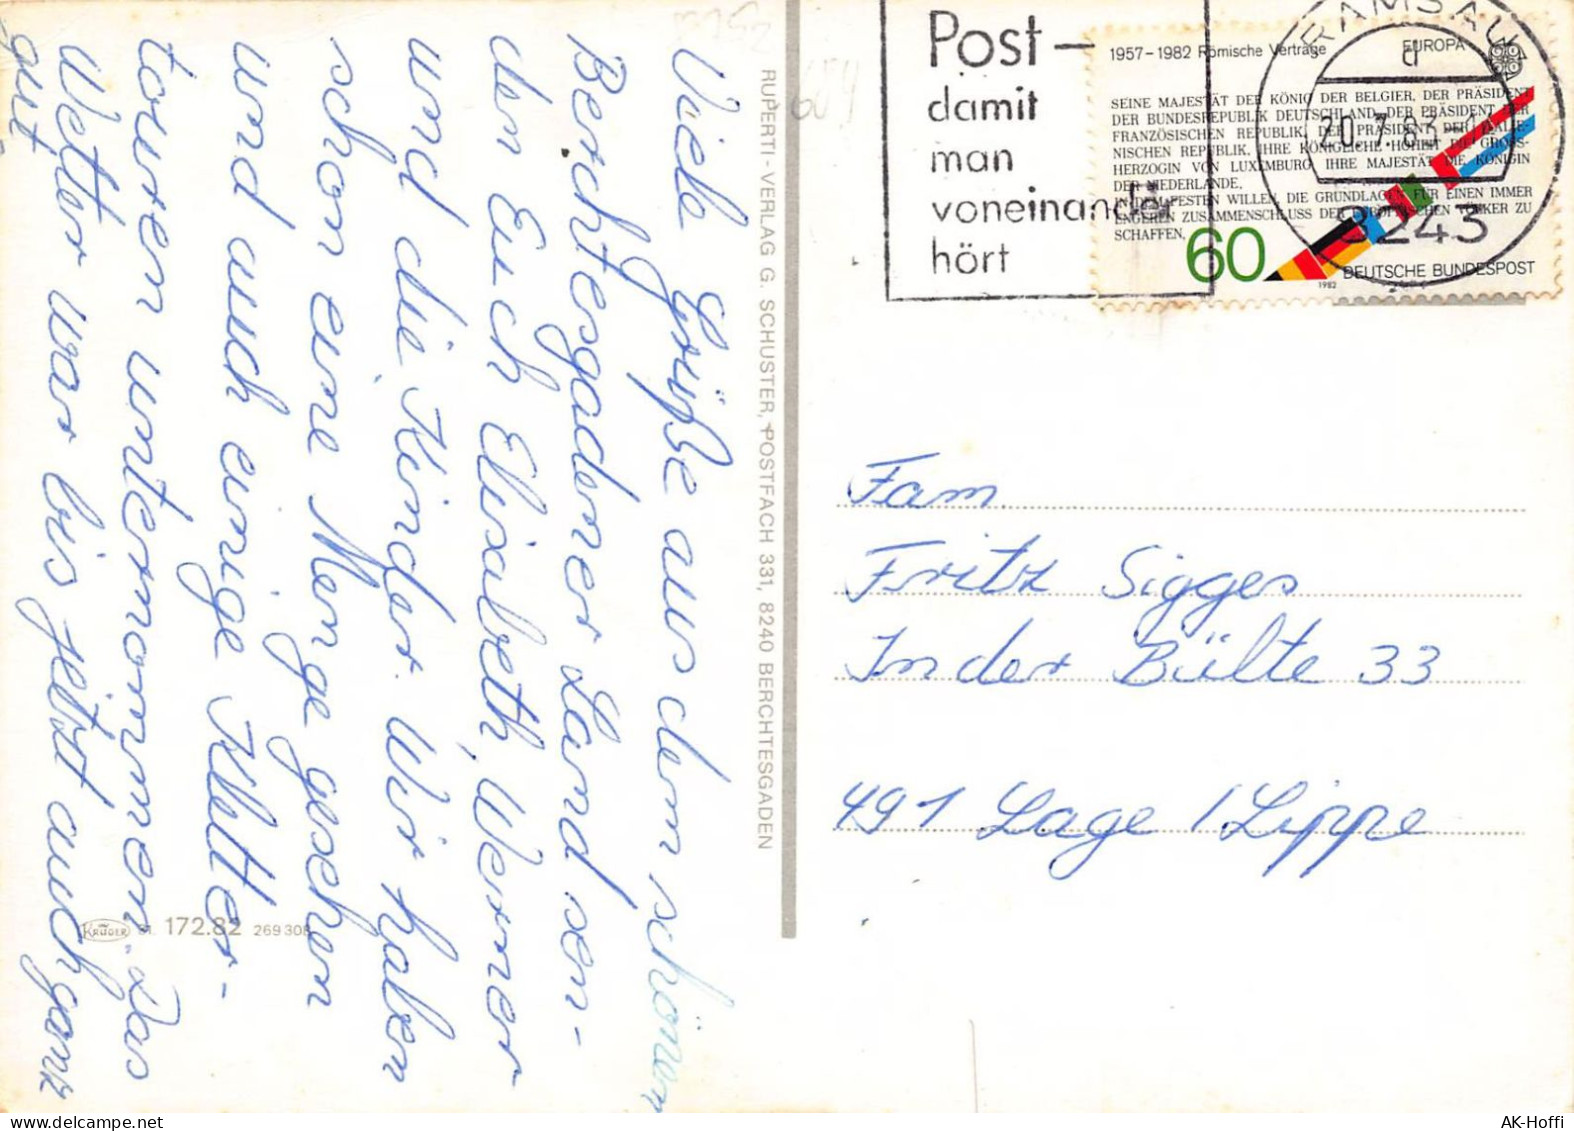 Viele Grüße aus dem schönen
Berchtesgadener Land sen-
den Euch Elisabeth, Werner
und die Kinder. Wir haben
schon eine Menge gesehen
und auch einige Kletter-
touren unternommen. Das
Wetter war bis jetzt auch ganz
gut.
RUPERTI-VERLAG G. SCHUSTER, POSTFACH 331, 8240 BERCHTESGADEN
KRÜGER 172.82 269308
Post –
damit
man
voneinander
hört
RAMSAU
d
20.7.83
8243
1957–1982 Römische Verträge EUROPA
SEINE MAJESTÄT DER KÖNIG DER BELGIER, DER PRÄSIDENT
DER BUNDESREPUBLIK DEUTSCHLAND, DER PRÄSIDENT DER
FRANZÖSISCHEN REPUBLIK, DER PRÄSIDENT DER ITALIE-
NISCHEN REPUBLIK, IHRE KÖNIGLICHE HOHEIT DIE GROSS-
HERZOGIN VON LUXEMBURG, IHRE MAJESTÄT DIE KÖNIGIN
DER NIEDERLANDE,
IN DEM FESTEN WILLEN, DIE GRUNDLAGEN FÜR EINEN IMMER
ENGEREN ZUSAMMENSCHLUSS DER EUROPÄISCHEN VÖLKER ZU
SCHAFFEN,
60
1982
DEUTSCHE BUNDESPOST
Fam.
Fritz Sigges
In der Bülte 33
491 Lage / Lippe
AK-Hoffi